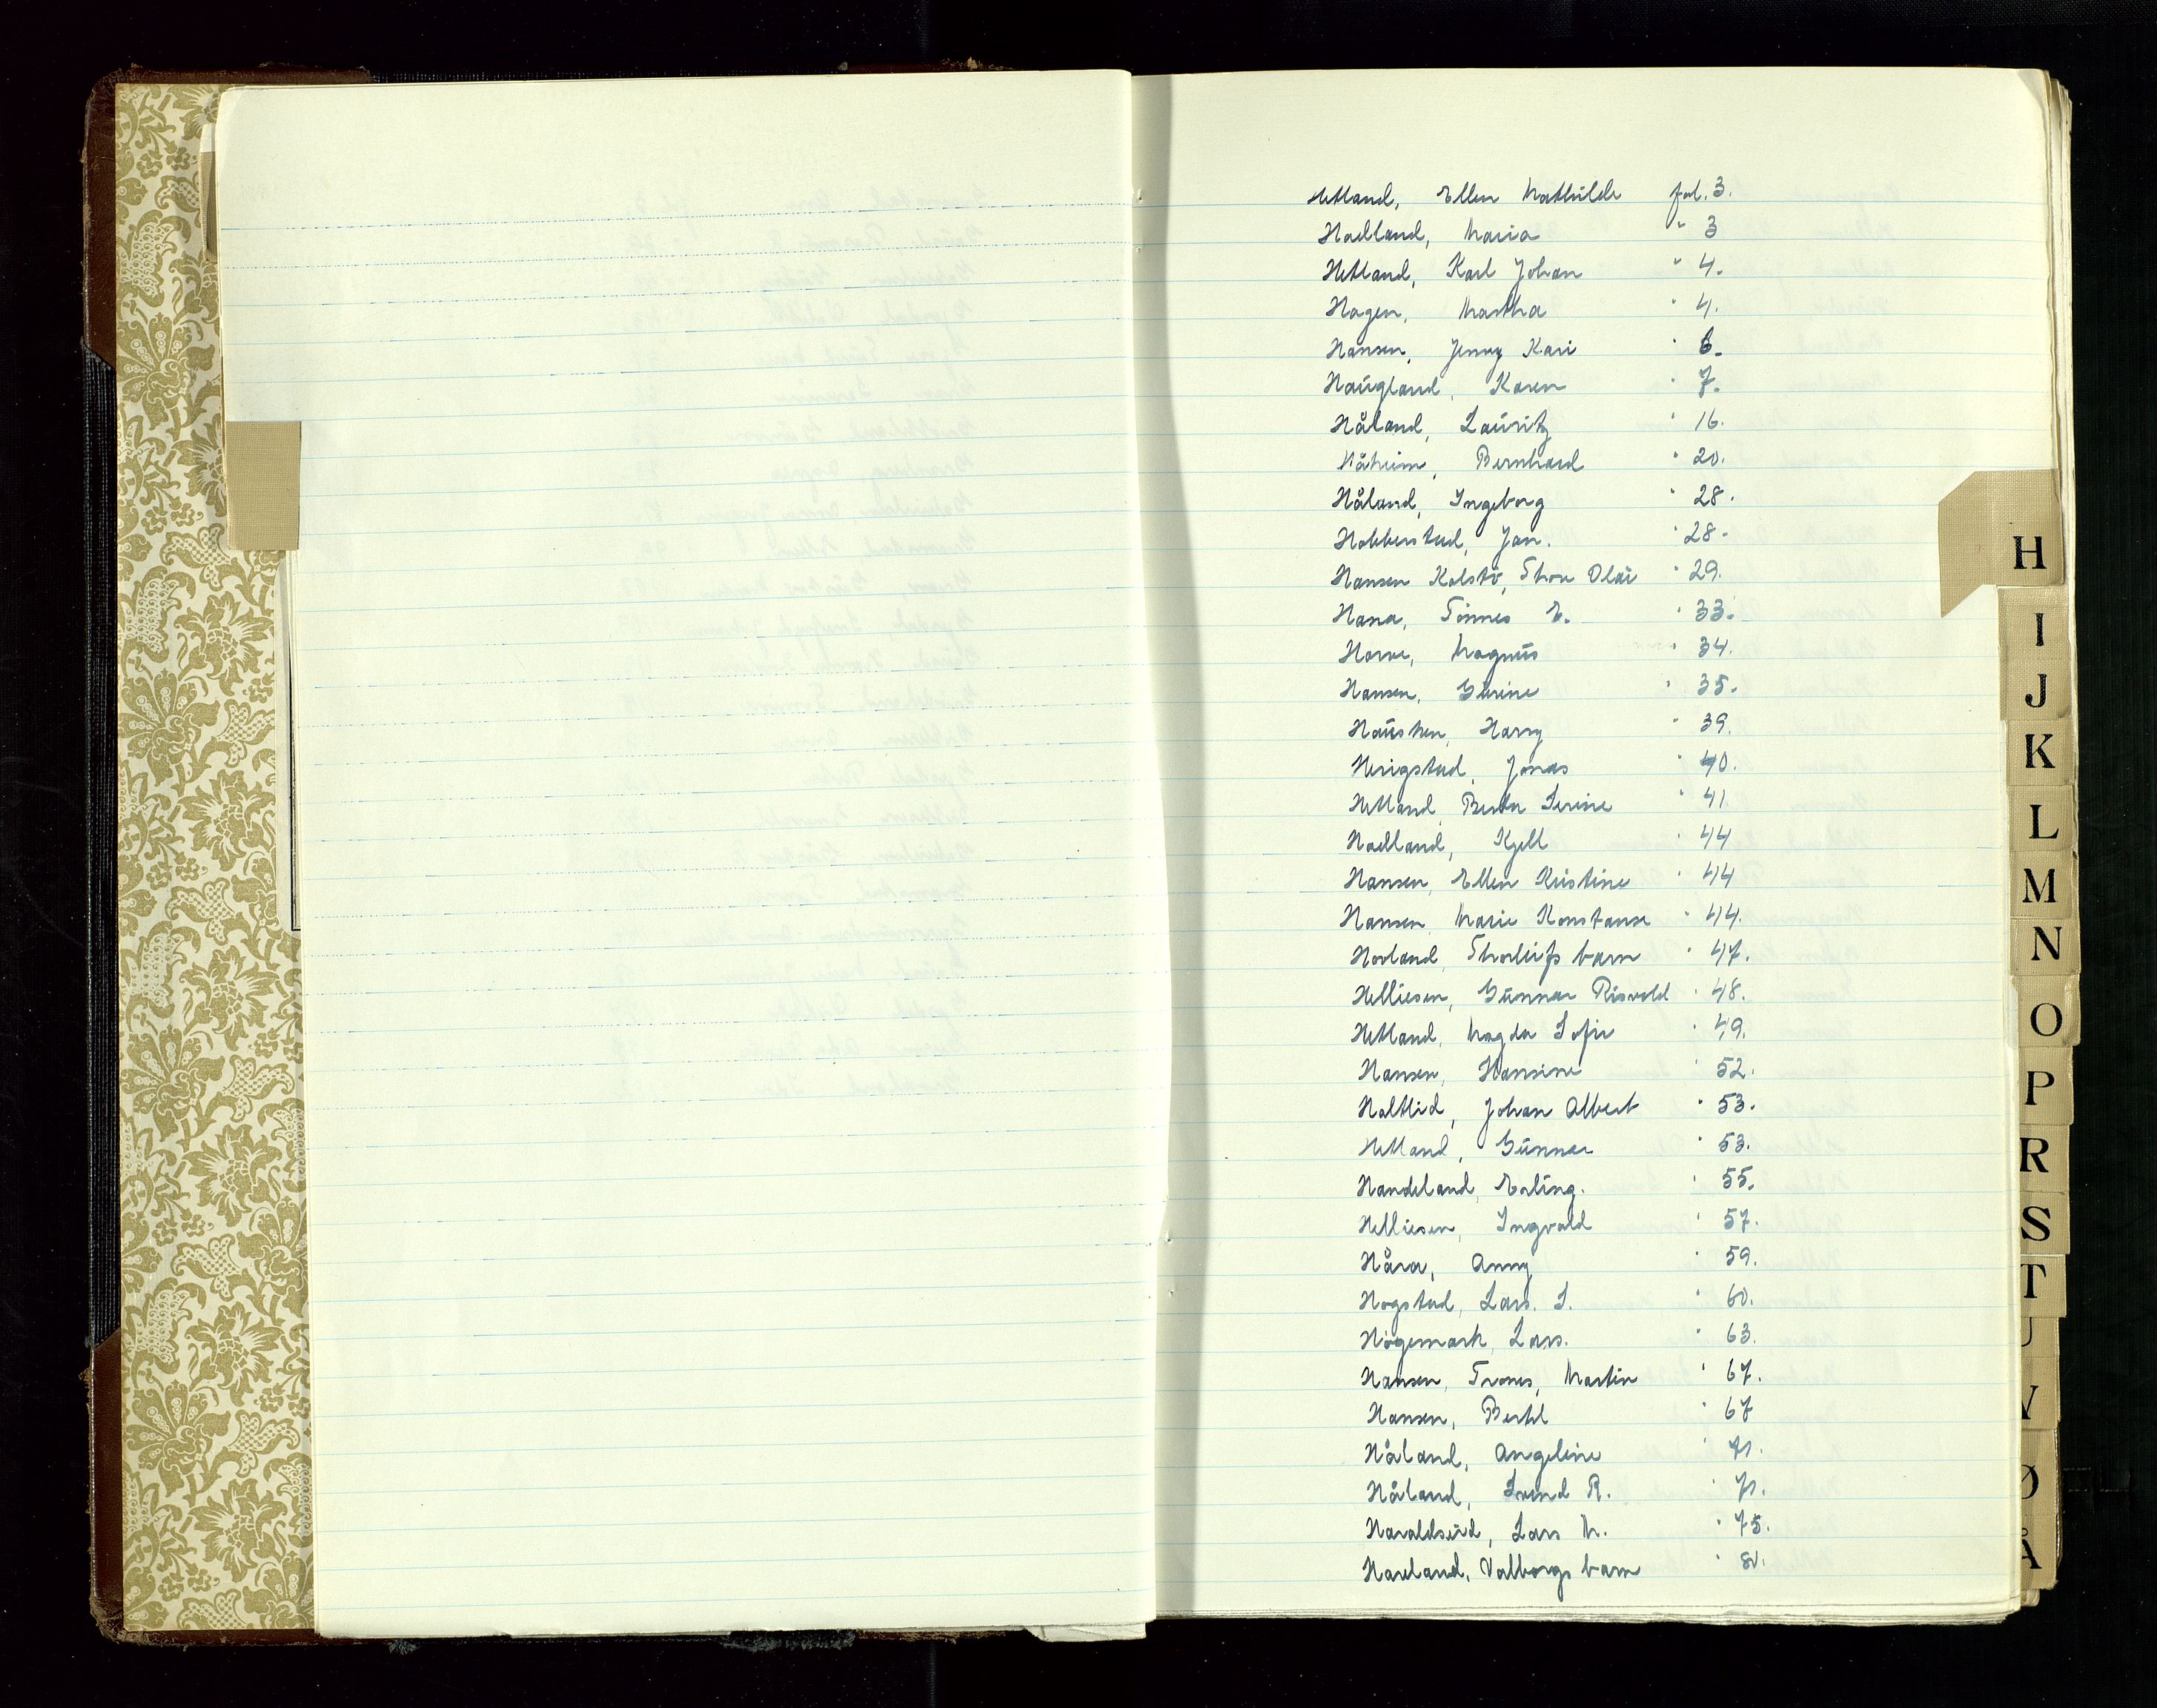 Hetland, Ellen Mathilde fol. 3.
Hadland, Maria " 3
Hetland, Karl Johan " 4.
Hagen, Martha " 4.
Hansen, Jenny Kari " 6.
Haugland, Karen " 7.
Håland, Lauritz " 16.
Håheim, Bernhard " 20.
Håland, Ingeborg " 28.
Hobberstad, Jan. " 28.
Hansen Kalstø, Thor Olai " 29.
Hana, Tønnes E. " 33.
Horve, Magnus " 34.
Hansen, Gurine " 35.
Hausken, Harry " 39.
Herigstad, Jonas " 40.
Hetland, Berta Serine " 41
Hadland, Kjell " 44
Hansen, Ellen Kristine " 44
Hansen, Marie Konstanse " 44.
Hovland, Thorleifs barn " 47.
Helliesen, Gunnar Risvold " 48.
Hetland, Magda Sofie " 49.
Hansen, Hansine " 52.
Haltlid, Johan Albert " 53.
Hetland, Gunnar " 53.
Handeland, Erling. " 55.
Helliesen, Ingvald " 57.
Håra, Anny " 59.
Hogstad, Lars. S. " 60.
Høgemark, Lars. " 63.
Hansen, Trones, Martin " 67.
Hansen, Bertel " 67
Håland, Angeline " 71.
Håland, R. " 71.
Haraldseid, Lars M. " 75.
Haveland, Valborgs barn "
H
I
J
K
L
M
N
O
P
R
S
T
U
V
Ø
Å